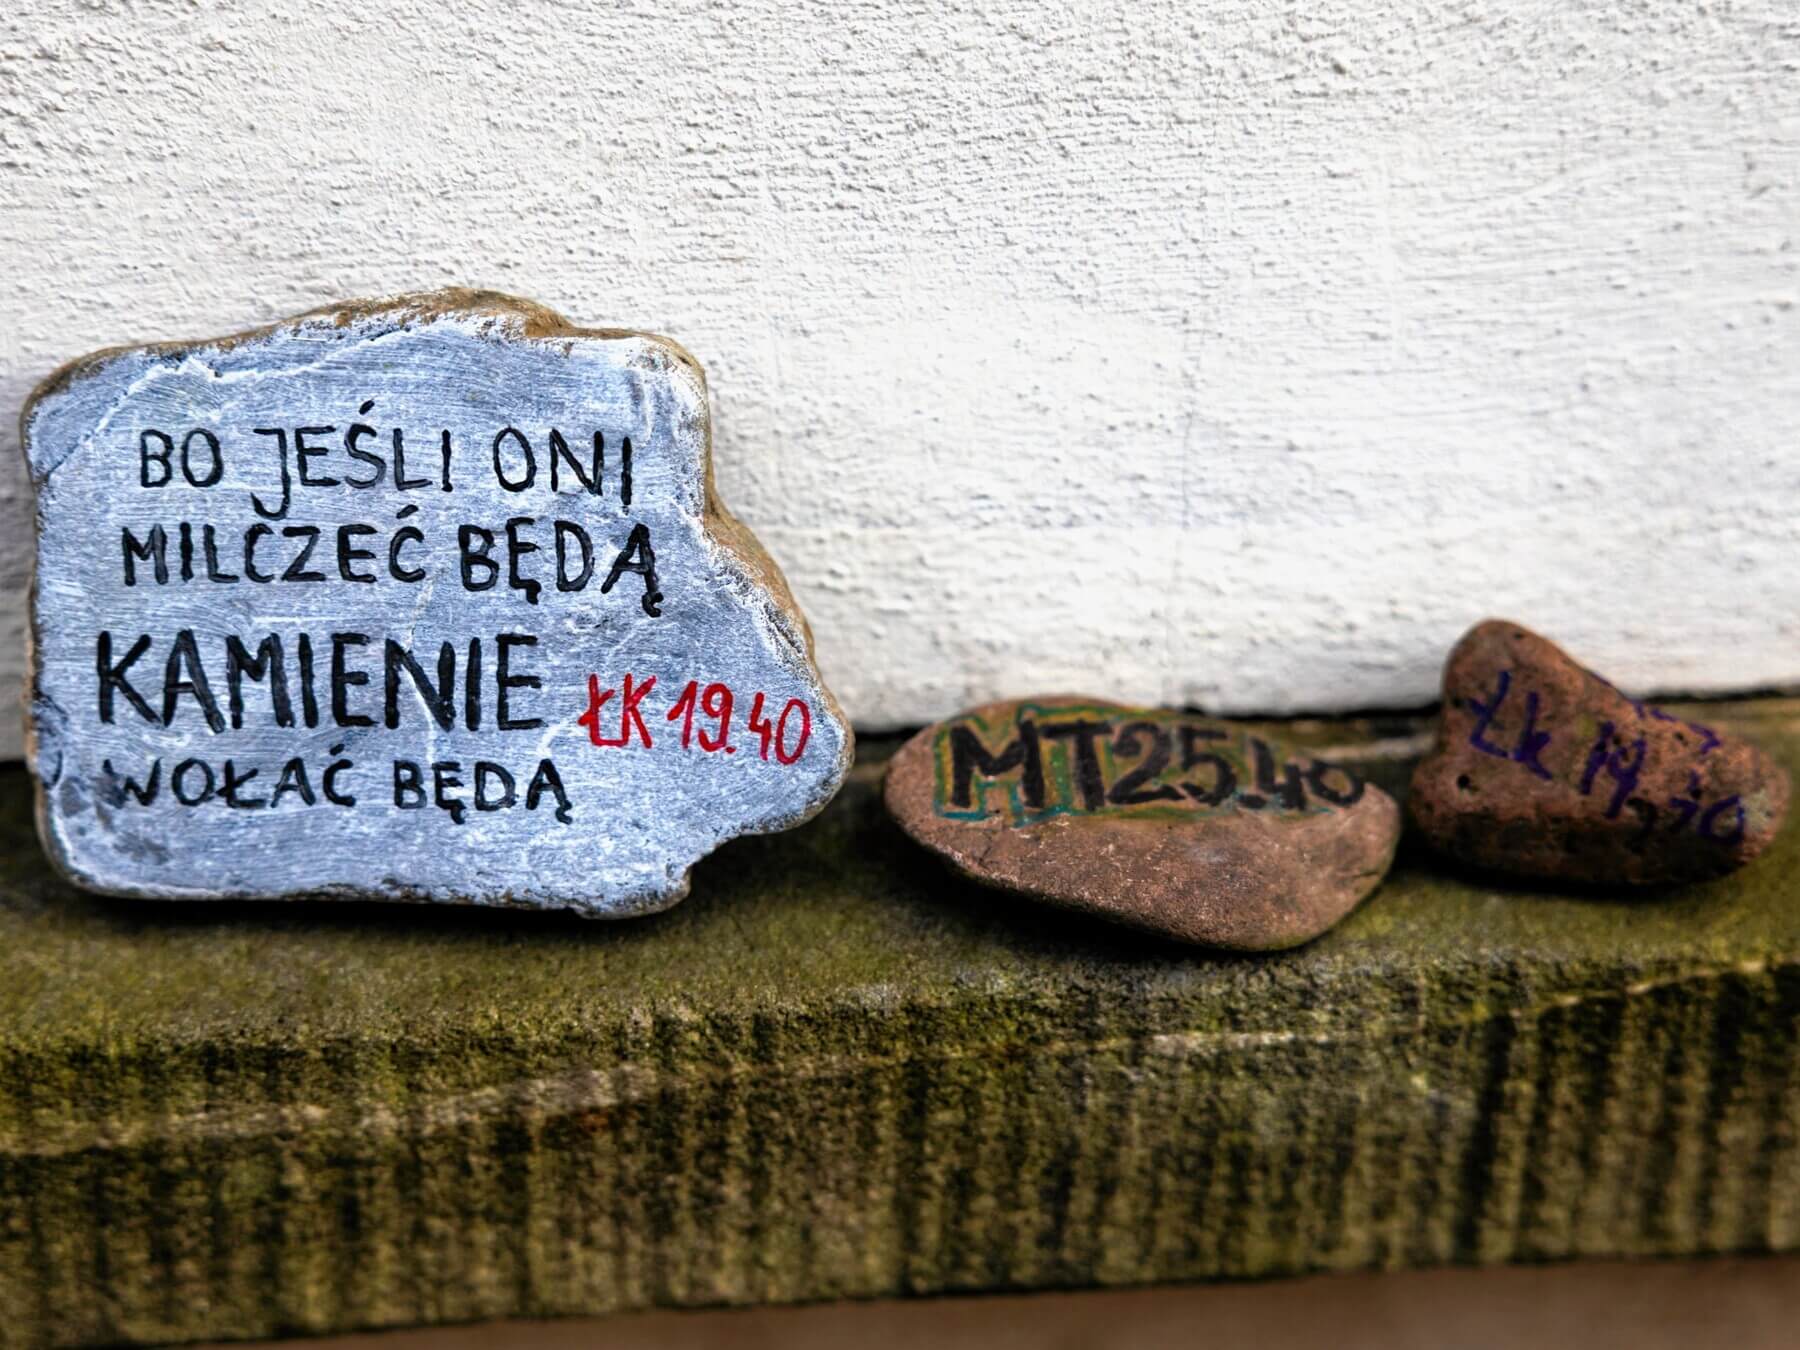 BO JEŚLI ONI
MILCZEĆ BĘDĄ
KAMIENIE
ŁK 19.40
WOŁAĆ BĘDĄ
MT 25.40
Łk 19,40